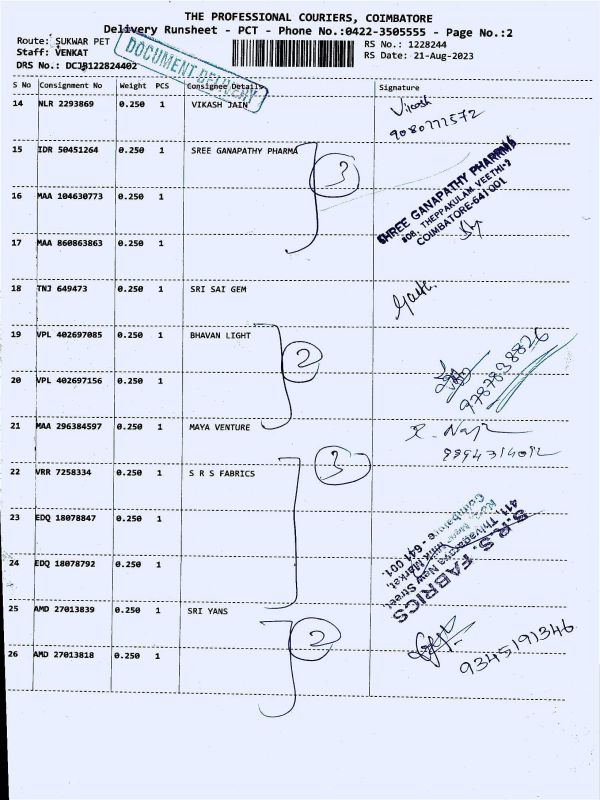 THE PROFESSIONAL COURIERS, COIMBATORE
Delivery Runsheet - PCT - Phone No.:0422-3505555 - Page No.:2
Route: SUKWAR PET
RS No.: 1228244
Staff: VENKAT
RS Date: 21-Aug-2023
DRS No.: DCJB122824402
DOCUMENT DELIVERY
S No Consignment No Weight PCS Consignee Details Signature
14 NLR 2293869 0.250 1 VIKASH JAIN
Vikash
9080777572
15 IDR 50451264 0.250 1 SREE GANAPATHY PHARMA
3
16 MAA 104630773 0.250 1
SHREE GANAPATHY PHARMA
THEPPAKULAM VEETHI-2
COIMBATORE-641001
17 MAA 860863863 0.250 1
18 TNJ 649473 0.250 1 SRI SAI GEM
19 VPL 402697085 0.250 1 BHAVAN LIGHT
2
9787838826
20 VPL 402697156 0.250 1
21 MAA 296384597 0.250 1 MAYA VENTURE
22 VRR 7258334 0.250 1 S R S FABRICS
3
23 EDQ 18078847 0.250 1
S.R.S. FABRICS
New Street
Market
Coimbatore - 641 001.
24 EDQ 18078792 0.250 1
25 AMD 27013839 0.250 1 SRI YANS
2
9345191346
26 AMD 27013818 0.250 1